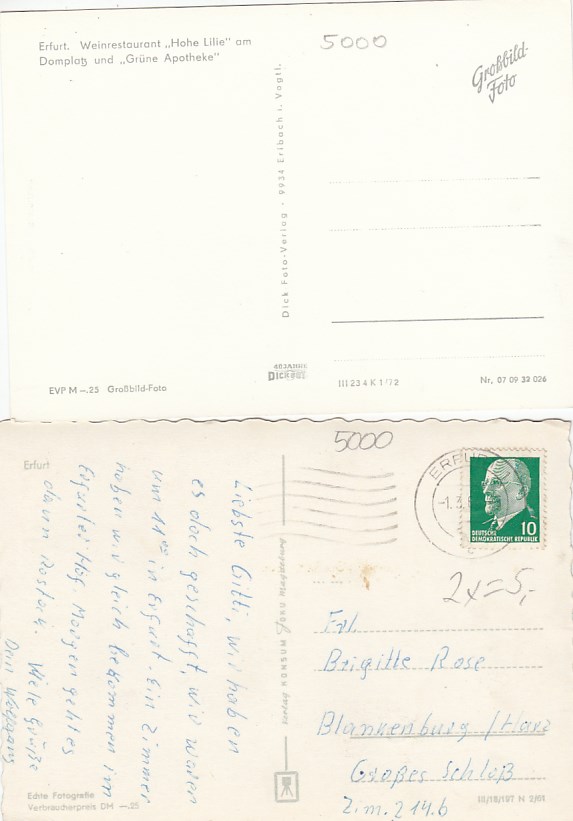 Erfurt. Weinrestaurant „Hohe Lilie" am
Domplatz und „Grüne Apotheke"
5000
Großbild-
Foto
Dick Foto-Verlag · 9934 Erlbach i. Vogtl.
40 JAHRE
DICK
EVP M –.25 Großbild-Foto
III 23 4 K 1/72
Nr. 07 09 33 026
5000
Erfurt
Liebste Gitti, wir haben
es doch geschafft, wir waren
um 11⁰⁰ in Erfurt. Ein Zimmer
haben wir gleich bekommen im
Erfurter Hof. Morgen geht es
dann Rostock. Viele Grüße
Dein Wolfgang
KONSUM FOTO
ERFU
-1.3.6
DEUTSCHE
DEMOKRATISCHE REPUBLIK
10
2x=5,-
Frl.
Brigitte Rose
Blankenburg /Harz
Großes Schloß
Zim. 214.b
Echte Fotografie
Verbraucherpreis DM –.25
III/18/197 N 2/61